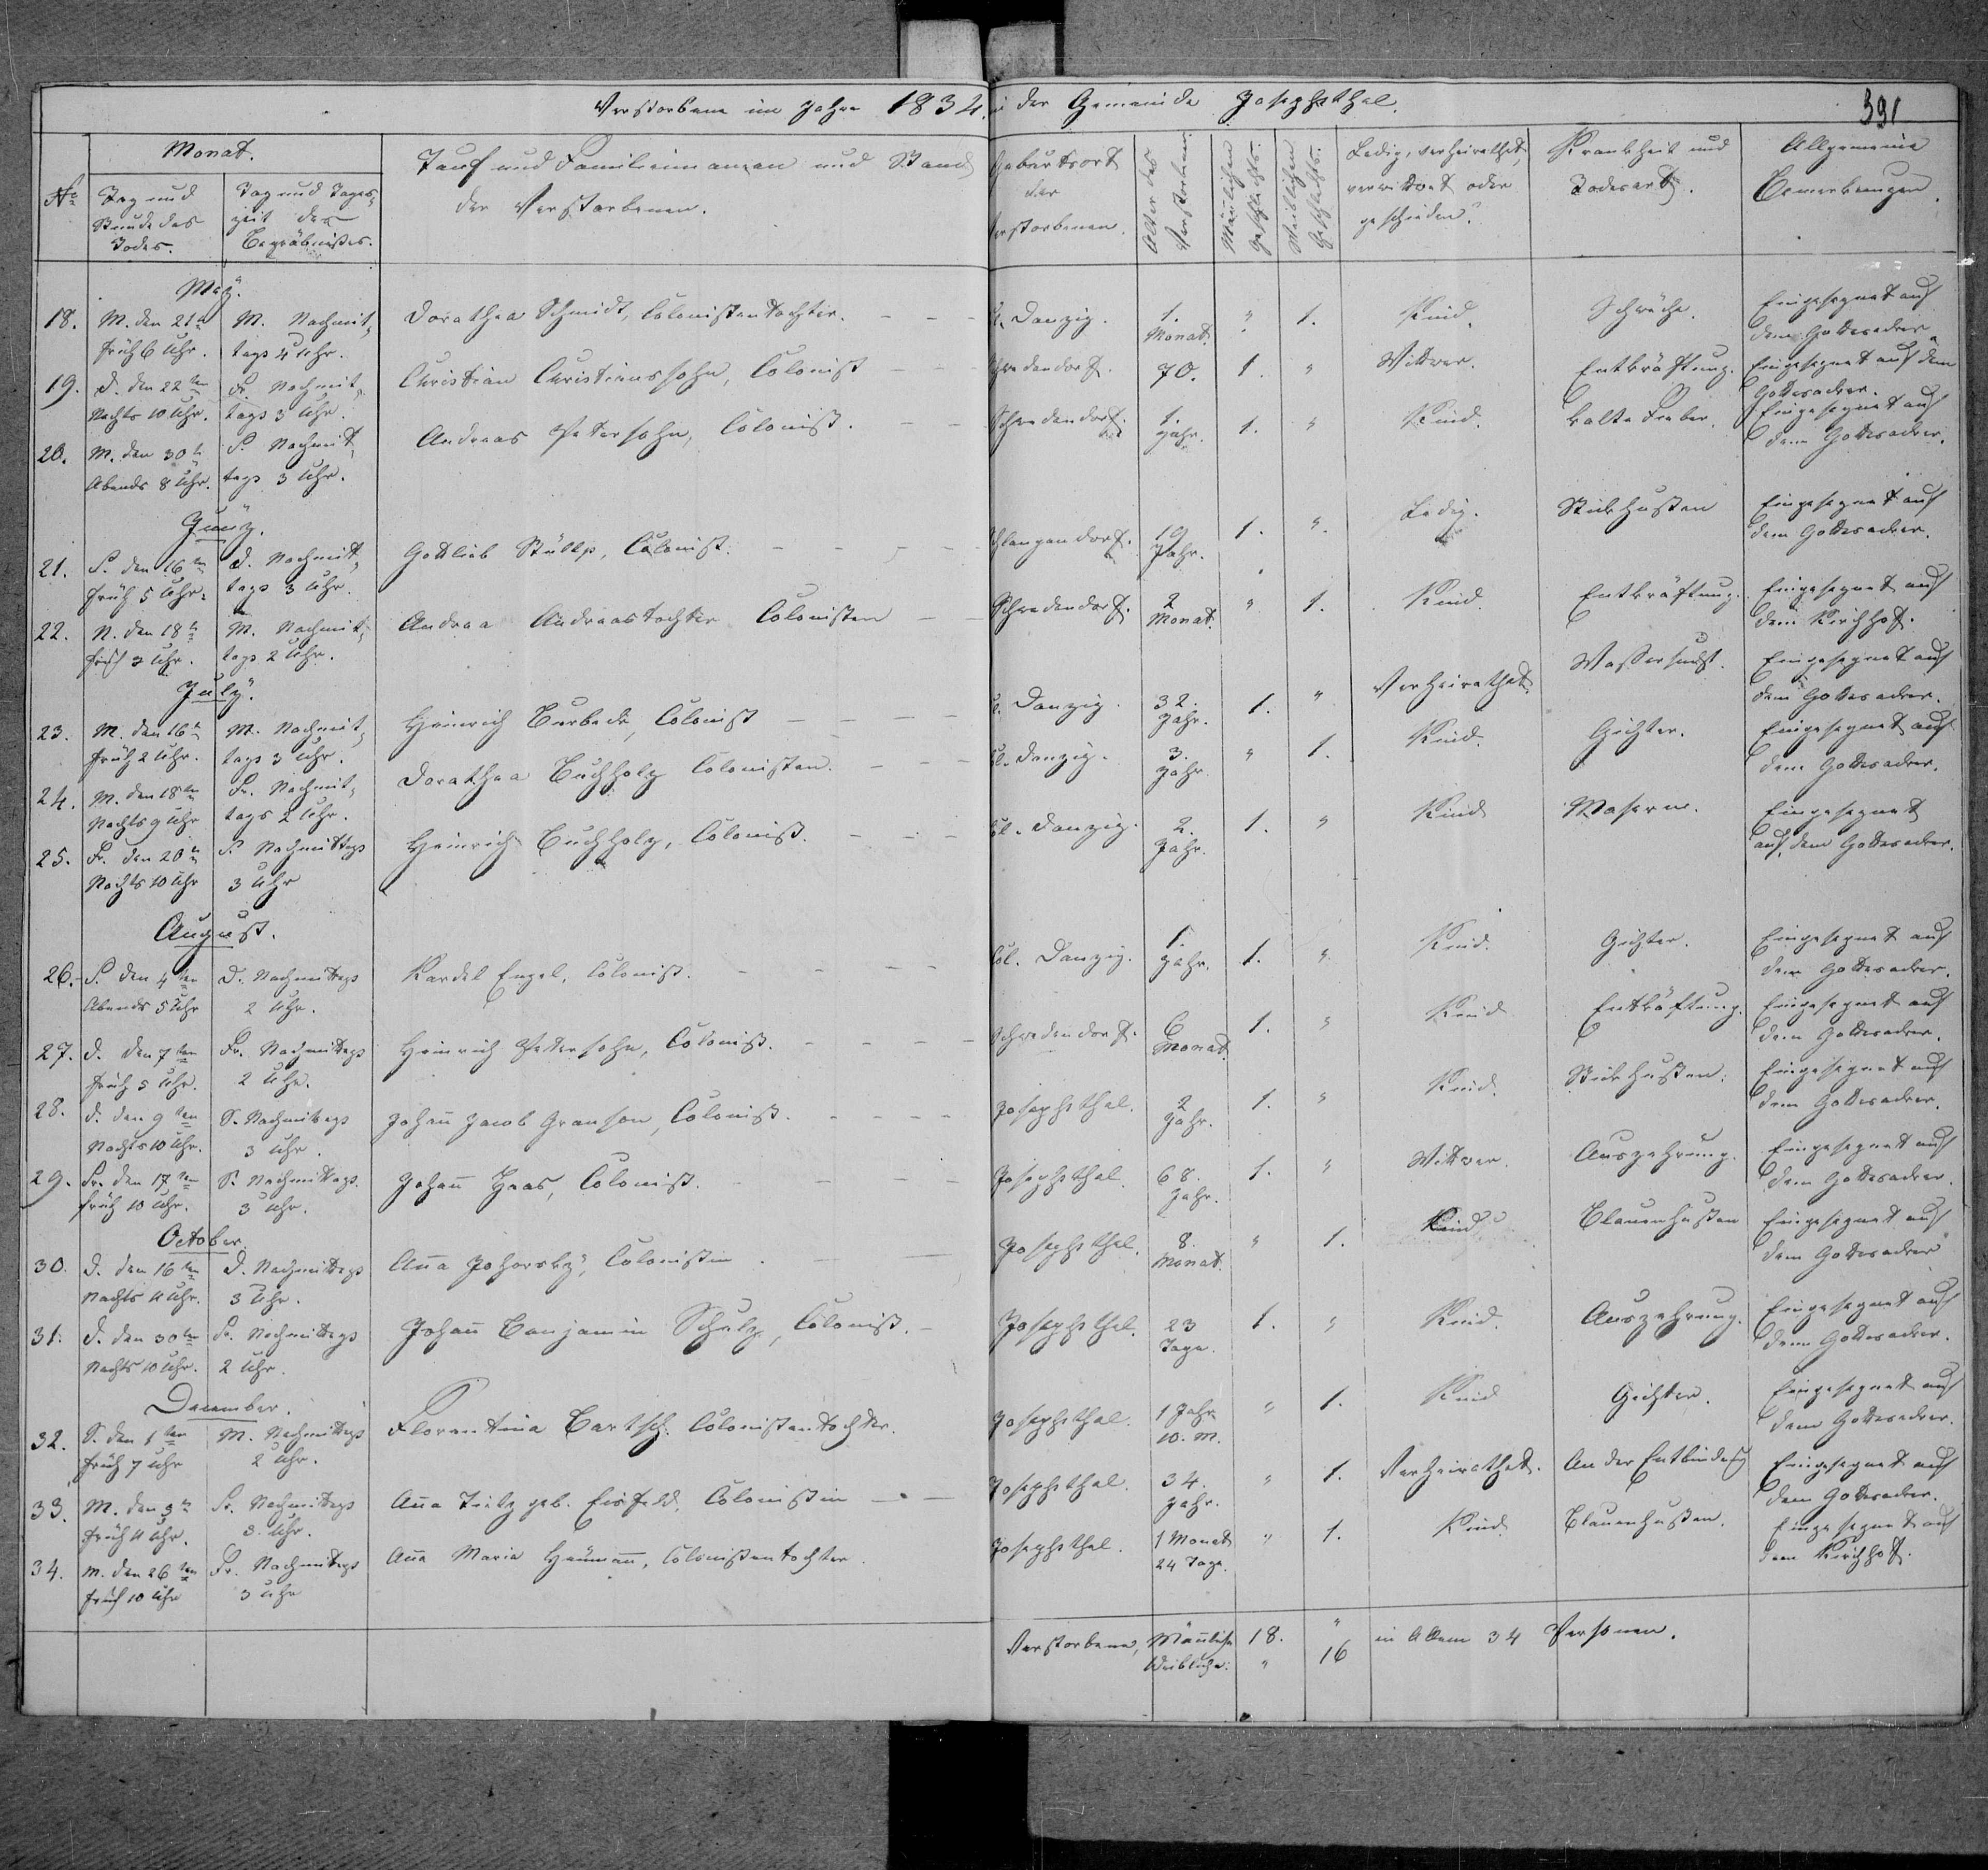 Verstorbene im Jahre 1834. in der Gemeinde Josephsthal.
391
No
Monat.
Tag und Stunde des Todes.
Tag und Tageszeit des Begräbnißes.
Tauf und Familiennamen und Stand der Verstorbenen.
Geburtsort der Verstorbenen.
Alter des Verstorbenen
Mänlichen Geschlechts.
Weiblichen Geschlechts.
Ledig, verheirathet, verwittwet oder geschieden?
Krankheit und Todesart.
Allgemeine Bemerkungen.
May.
18. M. den 21n M. Nachmit, Dorathea Schmidt, Colonistentochter. Danzig. 1. " 1. Kind. Schwäche. Eingesegnet auf
früh 6 Uhr. tags 4 Uhr. Monat. dem Gottesacker.
19. D. den 22ten Fr. Nachmit, Christian Christianssohn, Colonist Schwedendorf. 70. 1. " Wittwer. Entkräftung. Eingesegnet auf dem
Nachts 10 Uhr. tags 3 Uhr. Gottesacker.
20. M. den 30n S. Nachmit, Andreas Petersohn, Colonist. Schwedendorf. 1. 1. " Kind. kalte Fieber. Eingesegnet auf
Abends 8 Uhr. tags 3 Uhr. Jahr. dem Gottesacker.
Juny.
21. S. den 16ten D. Nachmit, Gottlieb Colonist. Schlangendorf. 19 1. " Ledig. Stickhusten Eingesegnet auf
früh 5 Uhr. tags 3 Uhr. Jahr. dem Gottesacker.
22. den 18n M. Nachmit, Andrea Andreastochter Colonisten Schwedendorf. 2 " 1. Kind. Entkräftung. Eingesegnet auf
früh 3 Uhr. tags 2 Uhr. Monat. dem Kirchhof.
July.
23. M. den 16n M. Nachmit, Heinrich Colonist Danzig. 32. 1. " Verheirathet. Wassersucht. Eingesegnet auf
früh 2 Uhr. tags 3 Uhr. Jahr. dem Gottesacker.
24. M. den 18ten Fr. Nachmit, Dorathea Buchholz Colonisten. Danzig. 3. " 1. Kind. Gichter. Eingesegnet auf
Nachts 9 Uhr tags 2 Uhr. Jahr. dem Gottesacker.
25. Fr. den 20n S. Nachmittags Heinrich Buchholz, Colonist. Danzig. 2. 1. " Kind Masern. Eingesegnet
Nachts 10 Uhr 3 Uhr Jahr. auf dem Gottesacker.
August.
26. S. den 4ten D. Nachmittags Kardel Engel, Colonist. Col. Danzig. 1. 1. " Kind. Gichter. Eingesegnet auf
Abends 5 Uhr 2 Uhr. Jahr. dem Gottesacker.
27. D. den 7ten Fr. Nachmittags Heinrich Petersohn, Colonist. Schwedendorf. 6 1. " Kind Entkräftung. Eingesegnet auf
früh 5 Uhr. 2 Uhr. Monat. dem Gottesacker.
28. D. den 9ten S. Nachmittags Johañ Jacob Granson, Colonist. Josephsthal. 2 1. " Kind. Stickhusten. Eingesegnet auf
Nachts 10 Uhr. 3 Uhr. Jahr. dem Gottesacker.
29. Fr. den 17ten S. Nachmittags. Johañ Haas, Colonist. Josephsthal. 68. 1. " Wittwer. Auszehrung. Eingesegnet auf
früh 10 Uhr. 3 Uhr. Jahr. dem Gottesacker.
October
30. D. den 16ten D. Nachmittags Aña Johorsky, Colonistin. Josephsthal. 8. " 1. Kind Blauenhusten Eingesegnet auf
Nachts 11 Uhr. 3 Uhr. Monat. dem Gottesacker
31. D. den 30ten Fr. Nachmittags Johañ Benjamin Schulz, Colonist. Josephsthal. 23 1. " Kind. Auszehrung. Eingesegnet auf
Nachts 10 Uhr. 2 Uhr. Tage. dem Gottesacker.
December.
32. S. den 1ten M. Nachmittags Florentina Bartsch. Colonistentochter. Josephsthal. 1 Jahr " 1. Kind Gichter. Eingesegnet auf
früh 7 Uhr 2 Uhr. 10. M. dem Gottesacker.
33. M. den 3n Fr. Nachmittags Aña Tietz geb. Eisfeld, Colonistin Josephsthal. 34. " 1. Verheirathet. An der Entbindung Eingesegnet auf
früh 11 Uhr. 3. Uhr. Jahr. dem Gottesacker.
34. M. den 26ten Fr. Nachmittags Aña Maria Heümañ, Colonistentochter. Josephsthal. 1 Monat " 1. Kind Blauenhusten. Eingesegnet auf
früh 10 Uhr 3 Uhr 24 Tage. dem Kirchhof.
Verstorbene, Mänliche 18. " in Allem 34 Personen.
Weibliche: " 16